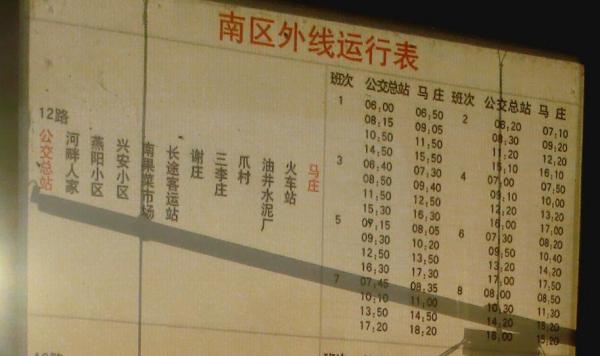 南区外线运行表
班次 公交总站 马庄 班次 公交总站 马庄
1 06:00 06:50 2 06:20 07:10
08:15 09:05 08:30 09:20
10:50 11:50 11:20 12:20
14:50 15:50 15:10 16:10
3 06:40 07:30 4 07:00 07:50
08:50 09:40 09:10 10:00
11:50 12:50 12:20 13:20
15:30 16:30 16:00 17:00
5 07:15 08:05 6 07:30 08:20
09:30 10:20 09:50 10:40
12:50 13:50 13:20 14:20
16:30 17:30 17:00 17:50
7 07:45 08:35 8 08:00 08:50
10:10 11:00 10:30 11:30
13:50 14:50 14:20 15:20
17:20 18:20 18:00
12路
公交总站
河畔人家
燕阳小区
兴安小区
南果菜市场
长途客运站
谢庄
三李庄
爪村
油井水泥厂
火车站
马庄